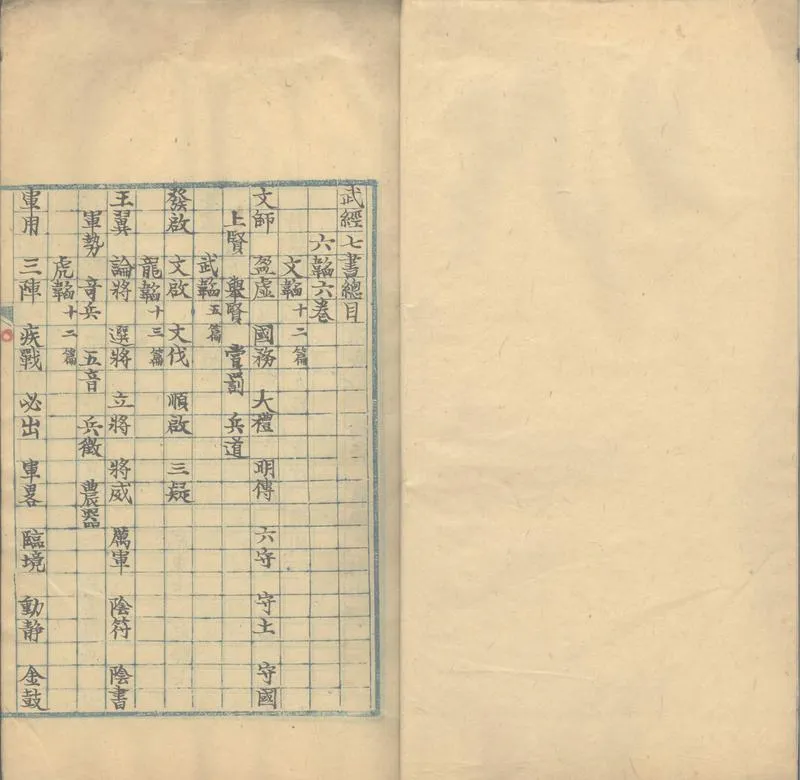 武經七書總目
六韜六卷
文韜十二篇
文師 盈虛 國務 大禮 明傳 六守 守土 守國
上賢 舉賢 賞罰 兵道
武韜五篇
發啟 文啟 文伐 順啟 三疑
龍韜十三篇
王翼 論將 選將 立將 將威 厲軍 陰符 陰書
軍勢 奇兵 五音 兵徵 農器
虎韜十二篇
軍用 三陣 疾戰 必出 軍畧 臨境 動靜 金鼓